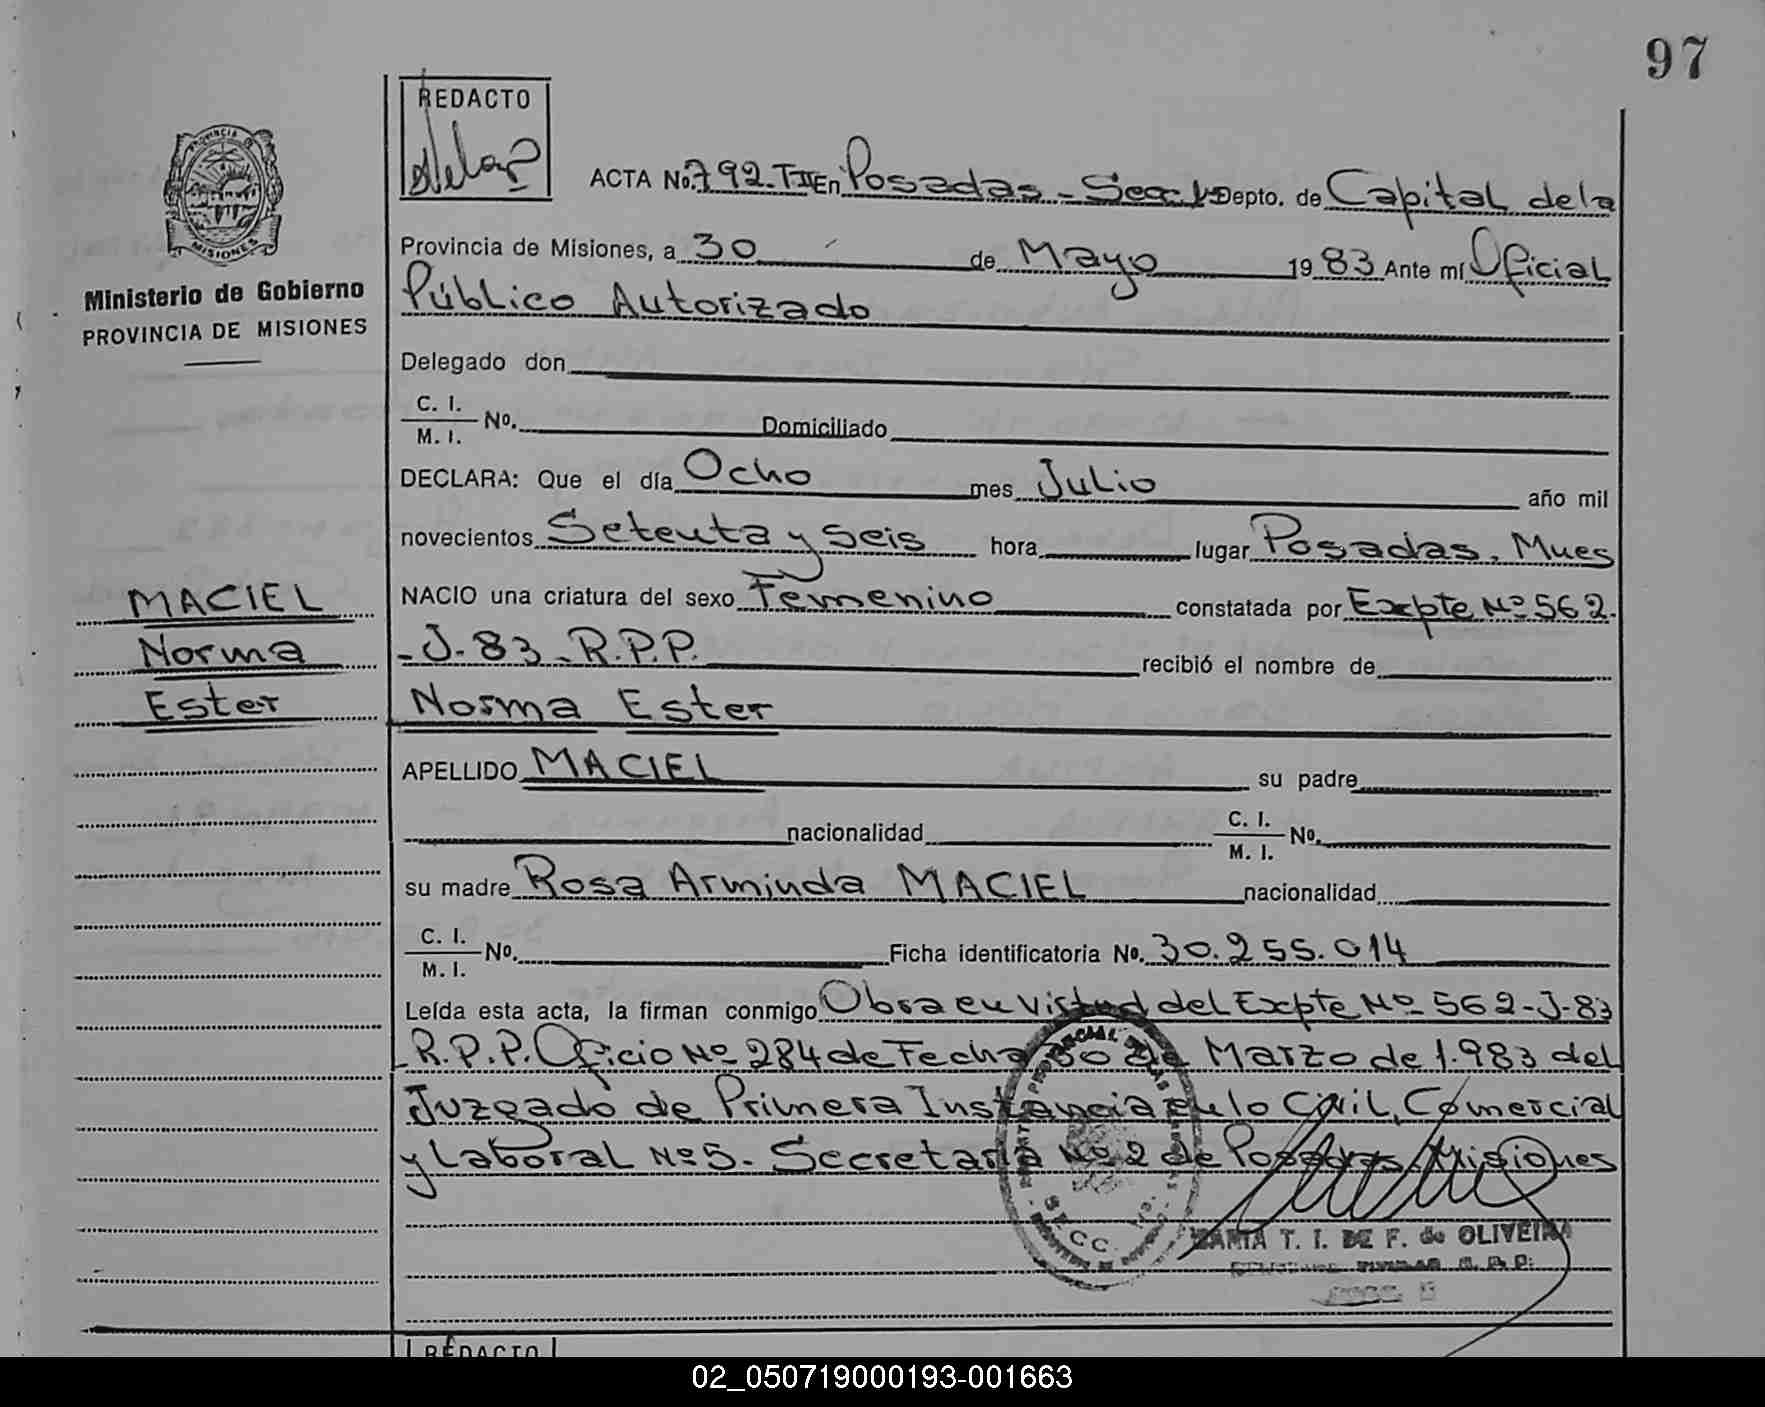 97
REDACTO
ACTA No. 792. T II En Posadas - Secc 1º Depto. de Capital de la
PROVINCIA DE MISIONES
Provincia de Misiones, a 30 de Mayo 19 83 Ante mí Oficial
Ministerio de Gobierno
PROVINCIA DE MISIONES
Público Autorizado
Delegado don
C. I.
M. I. No. Domiciliado
DECLARA: Que el día Ocho mes Julio año mil
novecientos Setenta y Seis hora lugar Posadas, Mnes
NACIO una criatura del sexo Femenino constatada por Expte Nº 562.
- J - 83 - R.P.P. recibió el nombre de
Norma Ester
MACIEL
Norma
Ester
APELLIDO MACIEL su padre
nacionalidad C. I.
M. I. No.
su madre Rosa Arminda MACIEL nacionalidad
C. I.
M. I. No. Ficha identificatoria No. 30.255.014
Leída esta acta, la firman conmigo Obra en virtud del Expte Nº 562-J-83
- R.P.P. Oficio Nº 284 de Fecha 30 de Marzo de 1.983 del
Juzgado de Primera Instancia en lo Civil, Comercial
y Laboral Nº 5. - Secretaria Nº 2 de Posadas Misiones
T. I. DE F. de OLIVEIRA
REDACTO
02_050719000193-001663